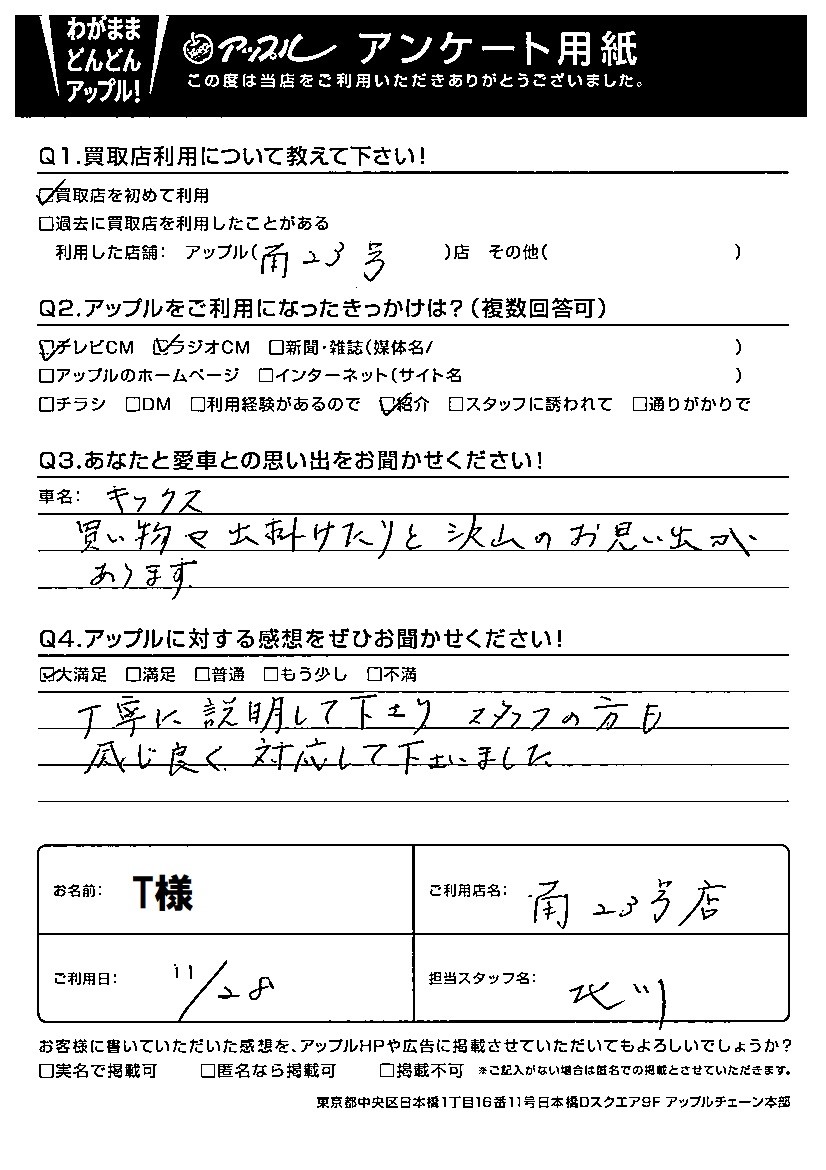 わがまま
どんどん
アップル!
アップル アンケート用紙
この度は当店をご利用いただきありがとうございました。
Q1.買取店利用について教えて下さい!
☑買取店を初めて利用
□過去に買取店を利用したことがある
利用した店舗: アップル(南23号 )店 その他( )
Q2.アップルをご利用になったきっかけは?(複数回答可)
☑テレビCM ☑ラジオCM □新聞・雑誌(媒体名/ )
□アップルのホームページ □インターネット(サイト名 )
□チラシ □DM □利用経験があるので ☑紹介 □スタッフに誘われて □通りがかりで
Q3.あなたと愛車との思い出をお聞かせください!
車名: キックス
買い物や出掛けたりと沢山のお思い出が
あります
Q4.アップルに対する感想をぜひお聞かせください!
☑大満足 □満足 □普通 □もう少し □不満
丁寧に説明して下さり スタッフの方も
感じ良く対応して下さいました
お名前: T様
ご利用店名: 南23号店
ご利用日: 11/28
担当スタッフ名: 北川
お客様に書いていただいた感想を、アップルHPや広告に掲載させていただいてもよろしいでしょうか?
□実名で掲載可 □匿名なら掲載可 □掲載不可 ※ご記入がない場合は匿名での掲載とさせていただきます。
東京都中央区日本橋1丁目16番11号日本橋Dスクエア9F アップルチェーン本部